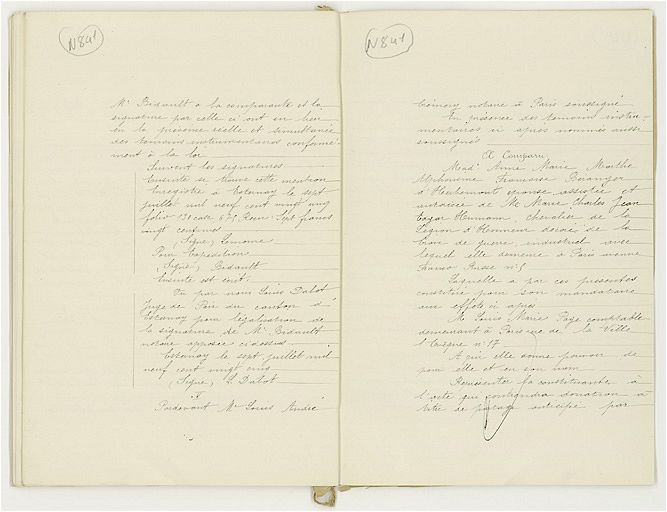 N841
Me Bidault a la comparante et la
signature par celle ci ont eu lieu
en la présence réelle et simultanée
des témoins instrumentaires conformé-
ment à la loi
Suivent les signatures
Ensuite se trouve cette mention
Enregistré à Esternay le sept
juillet mil neuf cent vingt un
folio 13 case 675 Reçu Sept francs
vingt centimes
(Signé) Lemoine
Pour Expédition
(Signé) Bidault
Ensuite est écrit
Vu par nous Louis Dalot
Juge de Paix du canton d'
Esternay pour légalisation de
la signature de Me Bidault
notaire apposée ci dessus
Esternay le sept juillet mil
neuf cent vingt un
(Signé) L. Dalot
Pardevant Me Louis André
N841
notaire à Paris soussigné
En présence des témoins instru-
mentaires ci après nommés aussi
soussignés
A Comparu
Made Anne Marie Marthe
Alphonsine Françoise Béranger
d'Herbemont épouse assistée et
autorisée de M. Marie Charles Jean
Edgar Humann, chevalier de la
Légion d'Honneur décoré de la
Croix de guerre, industriel avec
lequel elle demeure à Paris avenue
Franco Russe n° 5
Laquelle a par ces présentes
constitué pour son mandataire
aux effets ci après
M. Louis Marie Page comptable
demeurant à Paris rue de la Ville
l'Evêque n° 17
A qui elle donne pouvoir de
pour elle et en son nom
Représenter la constituante à
l'acte qui contiendra donation à
titre de partage anticipé par